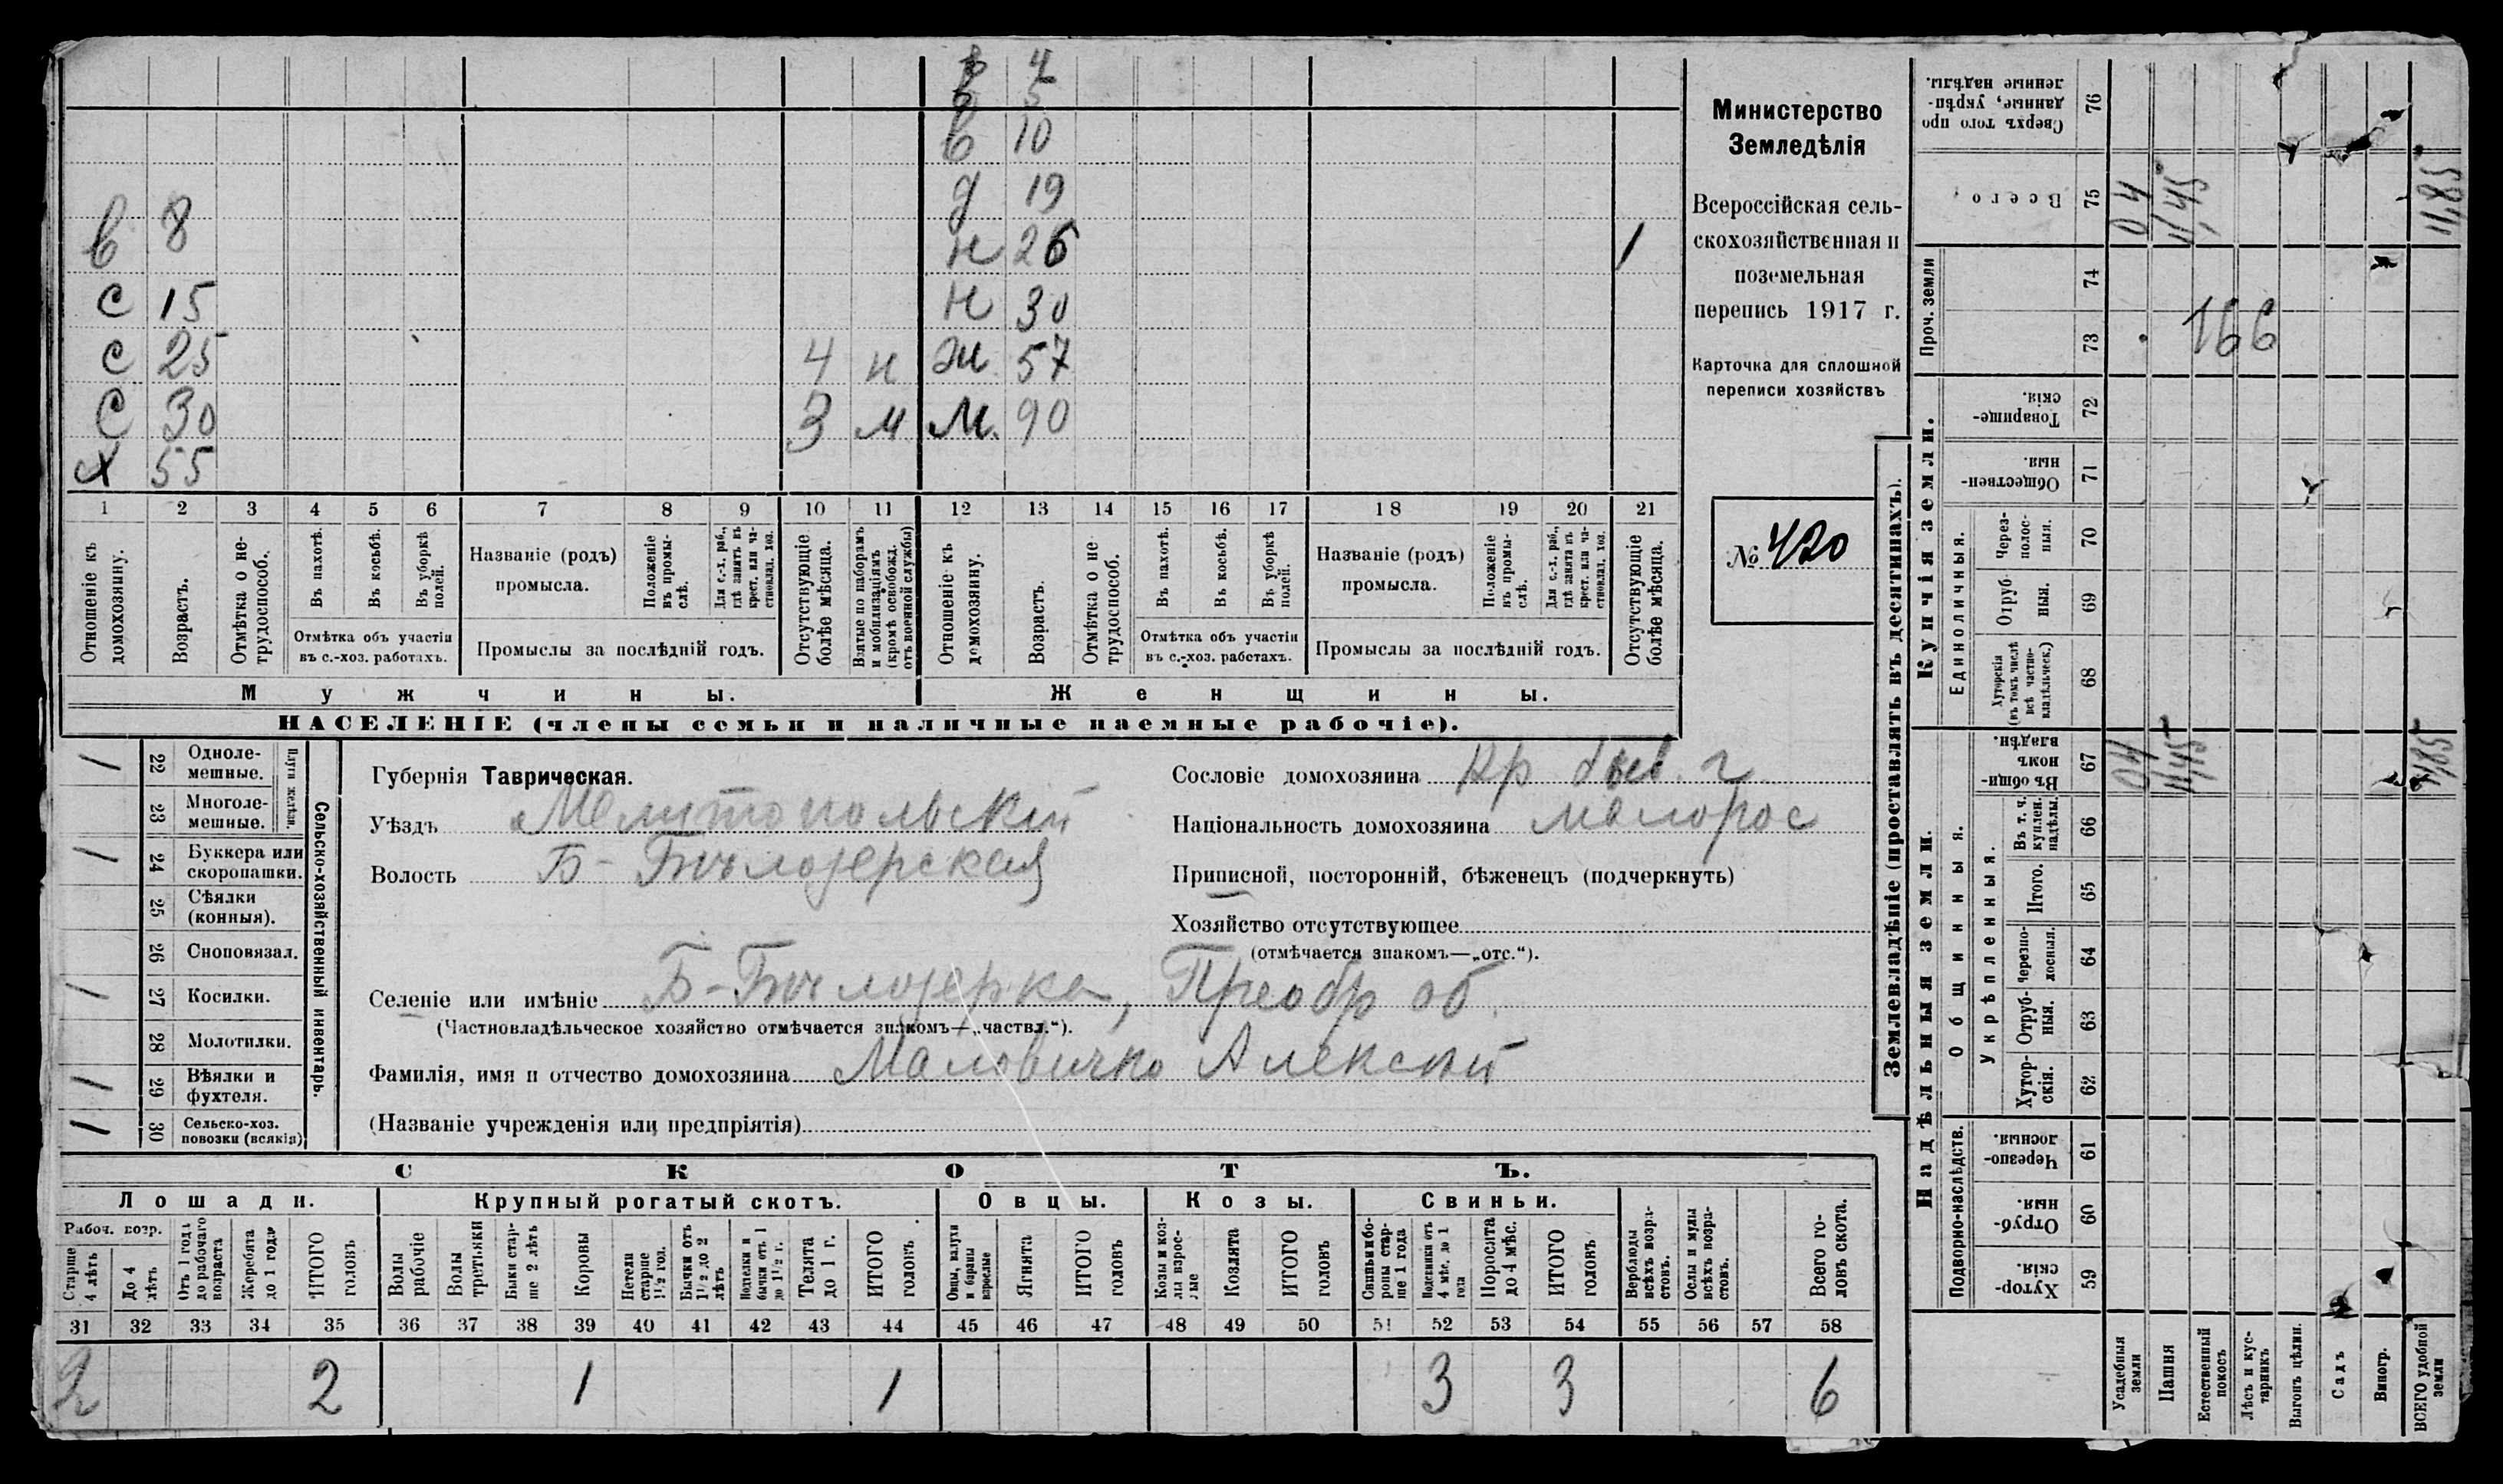 в 4
в 5
в 10
д 19
в 8 н 26 1
с 15 н 30
с 25 4 н ж 57
с 30 3 м м. 90
х 55
1 2 3 4 5 6 7 8 9 10 11 12 13 14 15 16 17 18 19 20 21
Отношеніе къ домохозяину.
Возрастъ.
Отмѣтка о не-трудоспособ.
Въ пахотѣ.
Въ косьбѣ.
Въ уборкѣ полей.
Отмѣтка объ участіи
въ с.-хоз. работахъ.
Названіе (родъ)
промысла.
Положеніе въ промы-слѣ.
Для с.-х. раб., гдѣ занятъ въ крест. или ча-стновлад. хоз.
Промыслы за послѣдній годъ.
Отсутствующіе болѣе мѣсяца.
Взятые по наборамъ и мобилизаціямъ (кромѣ освобожд. отъ военной службы)
Отношеніе къ домохозяину.
Возрастъ.
Отмѣтка о не трудоспособ.
Въ пахотѣ.
Въ косьбѣ.
Въ уборкѣ полей.
Отмѣтка объ участіи
въ с.-хоз. работахъ.
Названіе (родъ)
промысла.
Положеніе въ промы-слѣ.
Для с.-х. раб., гдѣ занята въ крест. или ча-стновлад. хоз.
Промыслы за послѣдній годъ.
Отсутствующіе болѣе мѣсяца.
Мужчины.
Женщины.
НАСЕЛЕНІЕ (члены семьи и наличные наемные рабочіе).
Министерство
Земледѣлія
Всероссійская сель-
скохозяйственная и
поземельная
перепись 1917 г.
Карточка для сплошной
переписи хозяйствъ
№ 420
1 22 Одноле-мешные.
23 Многоле-мешные.
Плуги желѣзн.
1 24 Буккера или скоропашки.
25 Сѣялки (конныя).
26 Сноповязал.
1 27 Косилки.
28 Молотилки.
1 29 Вѣялки и фухтеля.
1 30 Сельско-хоз. повозки (всякія)
Сельско-хозяйственный инвентарь.
Губернія Таврическая.
Уѣздъ Мелитопольскій
Волость Б-Бѣлозерская
Селеніе или имѣніе Б-Бѣлозерка, Преобр об.
(Частновладѣльческое хозяйство отмѣчается знакомъ—„частвл.“).
Фамилія, имя и отчество домохозяина Маловичко Алексѣй
(Названіе учрежденія или предпріятія)
Сословіе домохозяина кр быв. г.
Національность домохозяина малорос
Приписной, посторонній, бѣженецъ (подчеркнуть)
Хозяйство отсутствующее
(отмѣчается знакомъ—„отс.“).
СКОТЪ.
Лошади. Крупный рогатый скотъ. Овцы. Козы. Свиньи.
Рабоч. возр.
Старше 4 лѣтъ
До 4 лѣтъ
Отъ 1 года до рабочаго возраста
Жеребята до 1 года
ИТОГО головъ
Волы рабочіе
Волы третьяки
Быки стар-ше 2 лѣтъ
Коровы
Нетели старше 1½ год.
Бычки отъ 1½ до 2 лѣтъ
Подтелки и бычки отъ 1 до 1½ г.
Телята до 1 г.
ИТОГО головъ
Овцы, валухи и бараны взрослые
Ягнята
ИТОГО головъ
Козы и коз-лы взрос-лые
Козлята
ИТОГО головъ
Свиньи и бо-ровы стар-ше 1 года
Подсвинки отъ 4 мѣс. до 1 года
Поросята до 4 мѣс.
ИТОГО головъ
Верблюды всѣхъ возра-стовъ.
Ослы и мулы всѣхъ возра-стовъ.
Всего го-ловъ скота.
31 32 33 34 35 36 37 38 39 40 41 42 43 44 45 46 47 48 49 50 51 52 53 54 55 56 57 58
2 2 1 1 3 3 6
Землевладѣніе (проставлять въ десятинахъ).
Сверхъ того про данные, укрѣп-ленные надѣлы. 76
Всего. 75 04 11,45 11,85
Проч. земли
74
73 166
Купчія земли.
Товарище-скія. 72
Обществен-ныя. 71
Единоличныя.
Через-полос-ныя. 70
Отруб-ныя. 69
Хуторскія (въ томъ числѣ всѣ частно-владѣльческ.) 68
Надѣльныя земли.
Общинныя.
Въ общин-номъ владѣн. 67 04 11,45 11,85
Укрѣпленныя.
Въ т. ч. куплен. надѣлы. 66
Итого. 65
Черезпо-лосныя. 64
Отруб-ныя. 63
Хутор-скія. 62
Подворно-наслѣдств.
Черезпо-лосныя. 61
Отруб-ныя. 60
Хутор-скія. 59
Усадебныя земли
Пашня
Естественный покосъ
Лѣсъ и кус-тарникъ
Выгонъ цѣлин.
Садъ
Виногр.
ВСЕГО удобной земли